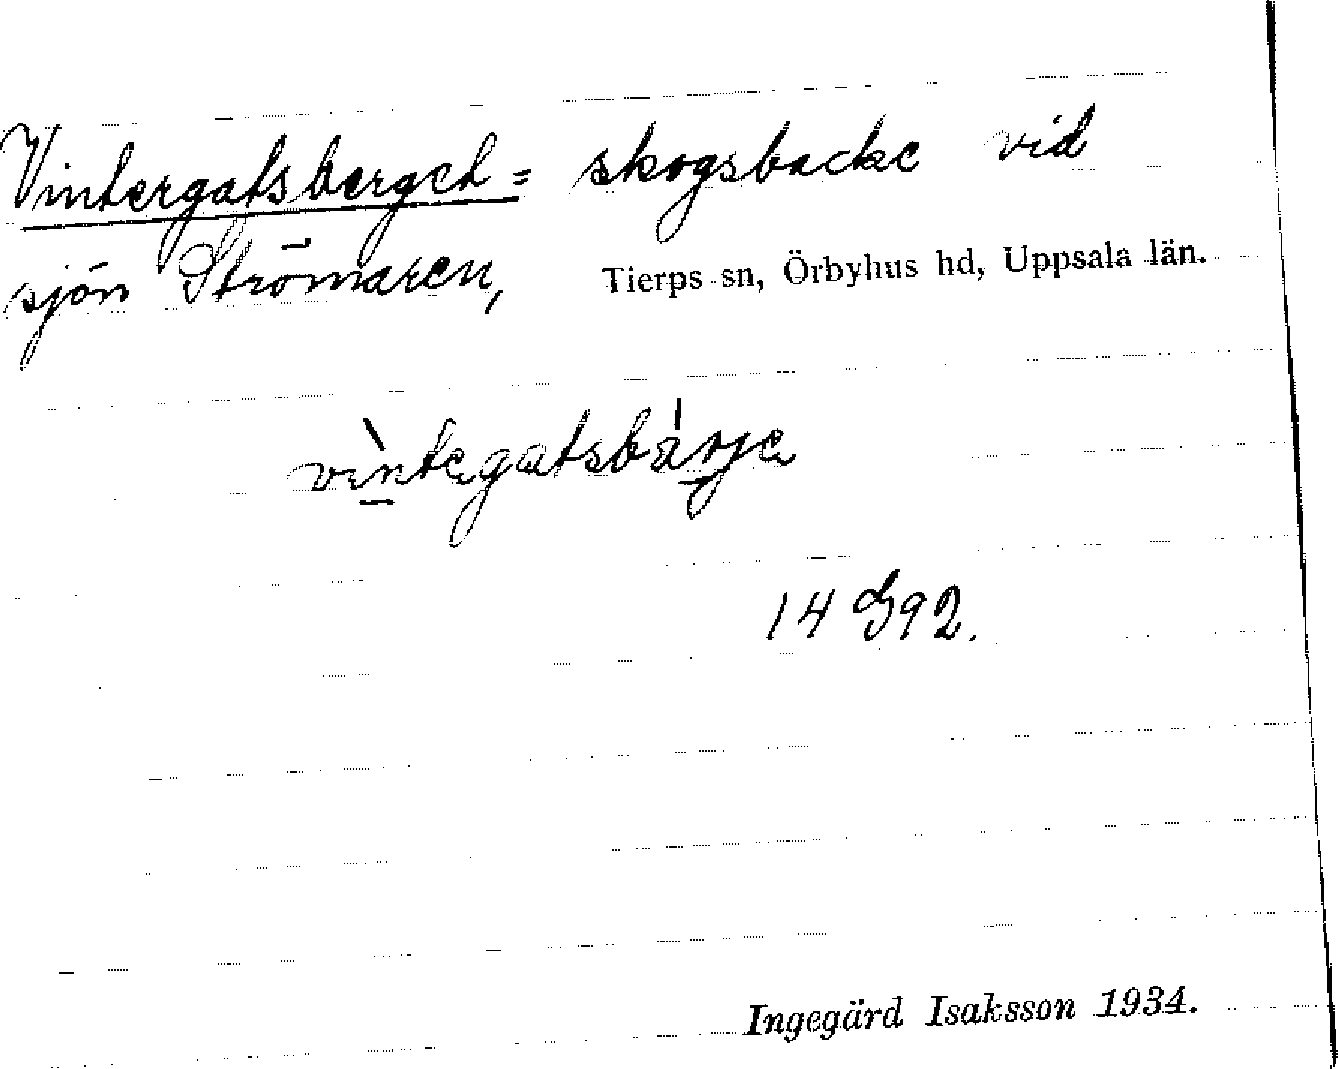 Vintergatsberget = skogsbacke vid
sjön Strömaren, Tierps sn, Örbyhus hd, Uppsala län.
vìntegatsbárje
14 G 92.
Ingegärd Isaksson 1934.